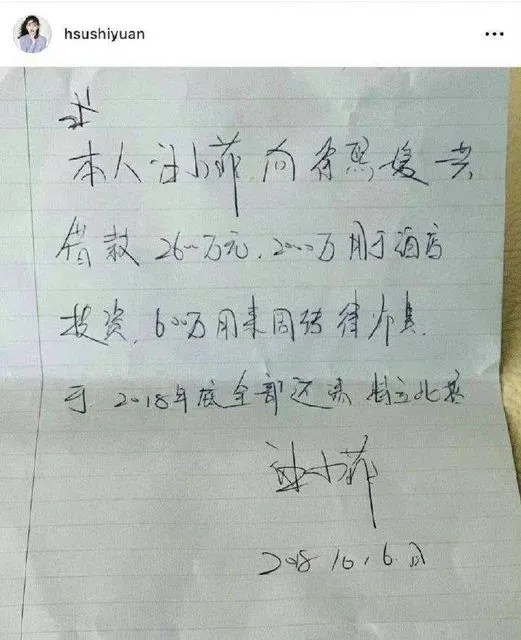 hsushiyuan
本人汪小菲向徐熙媛共
借款2600万元,2000万用于酒店
投资,600万用来周转律师费.
于2018年底全部还清 特立此
汪小菲
2018.10.6.日